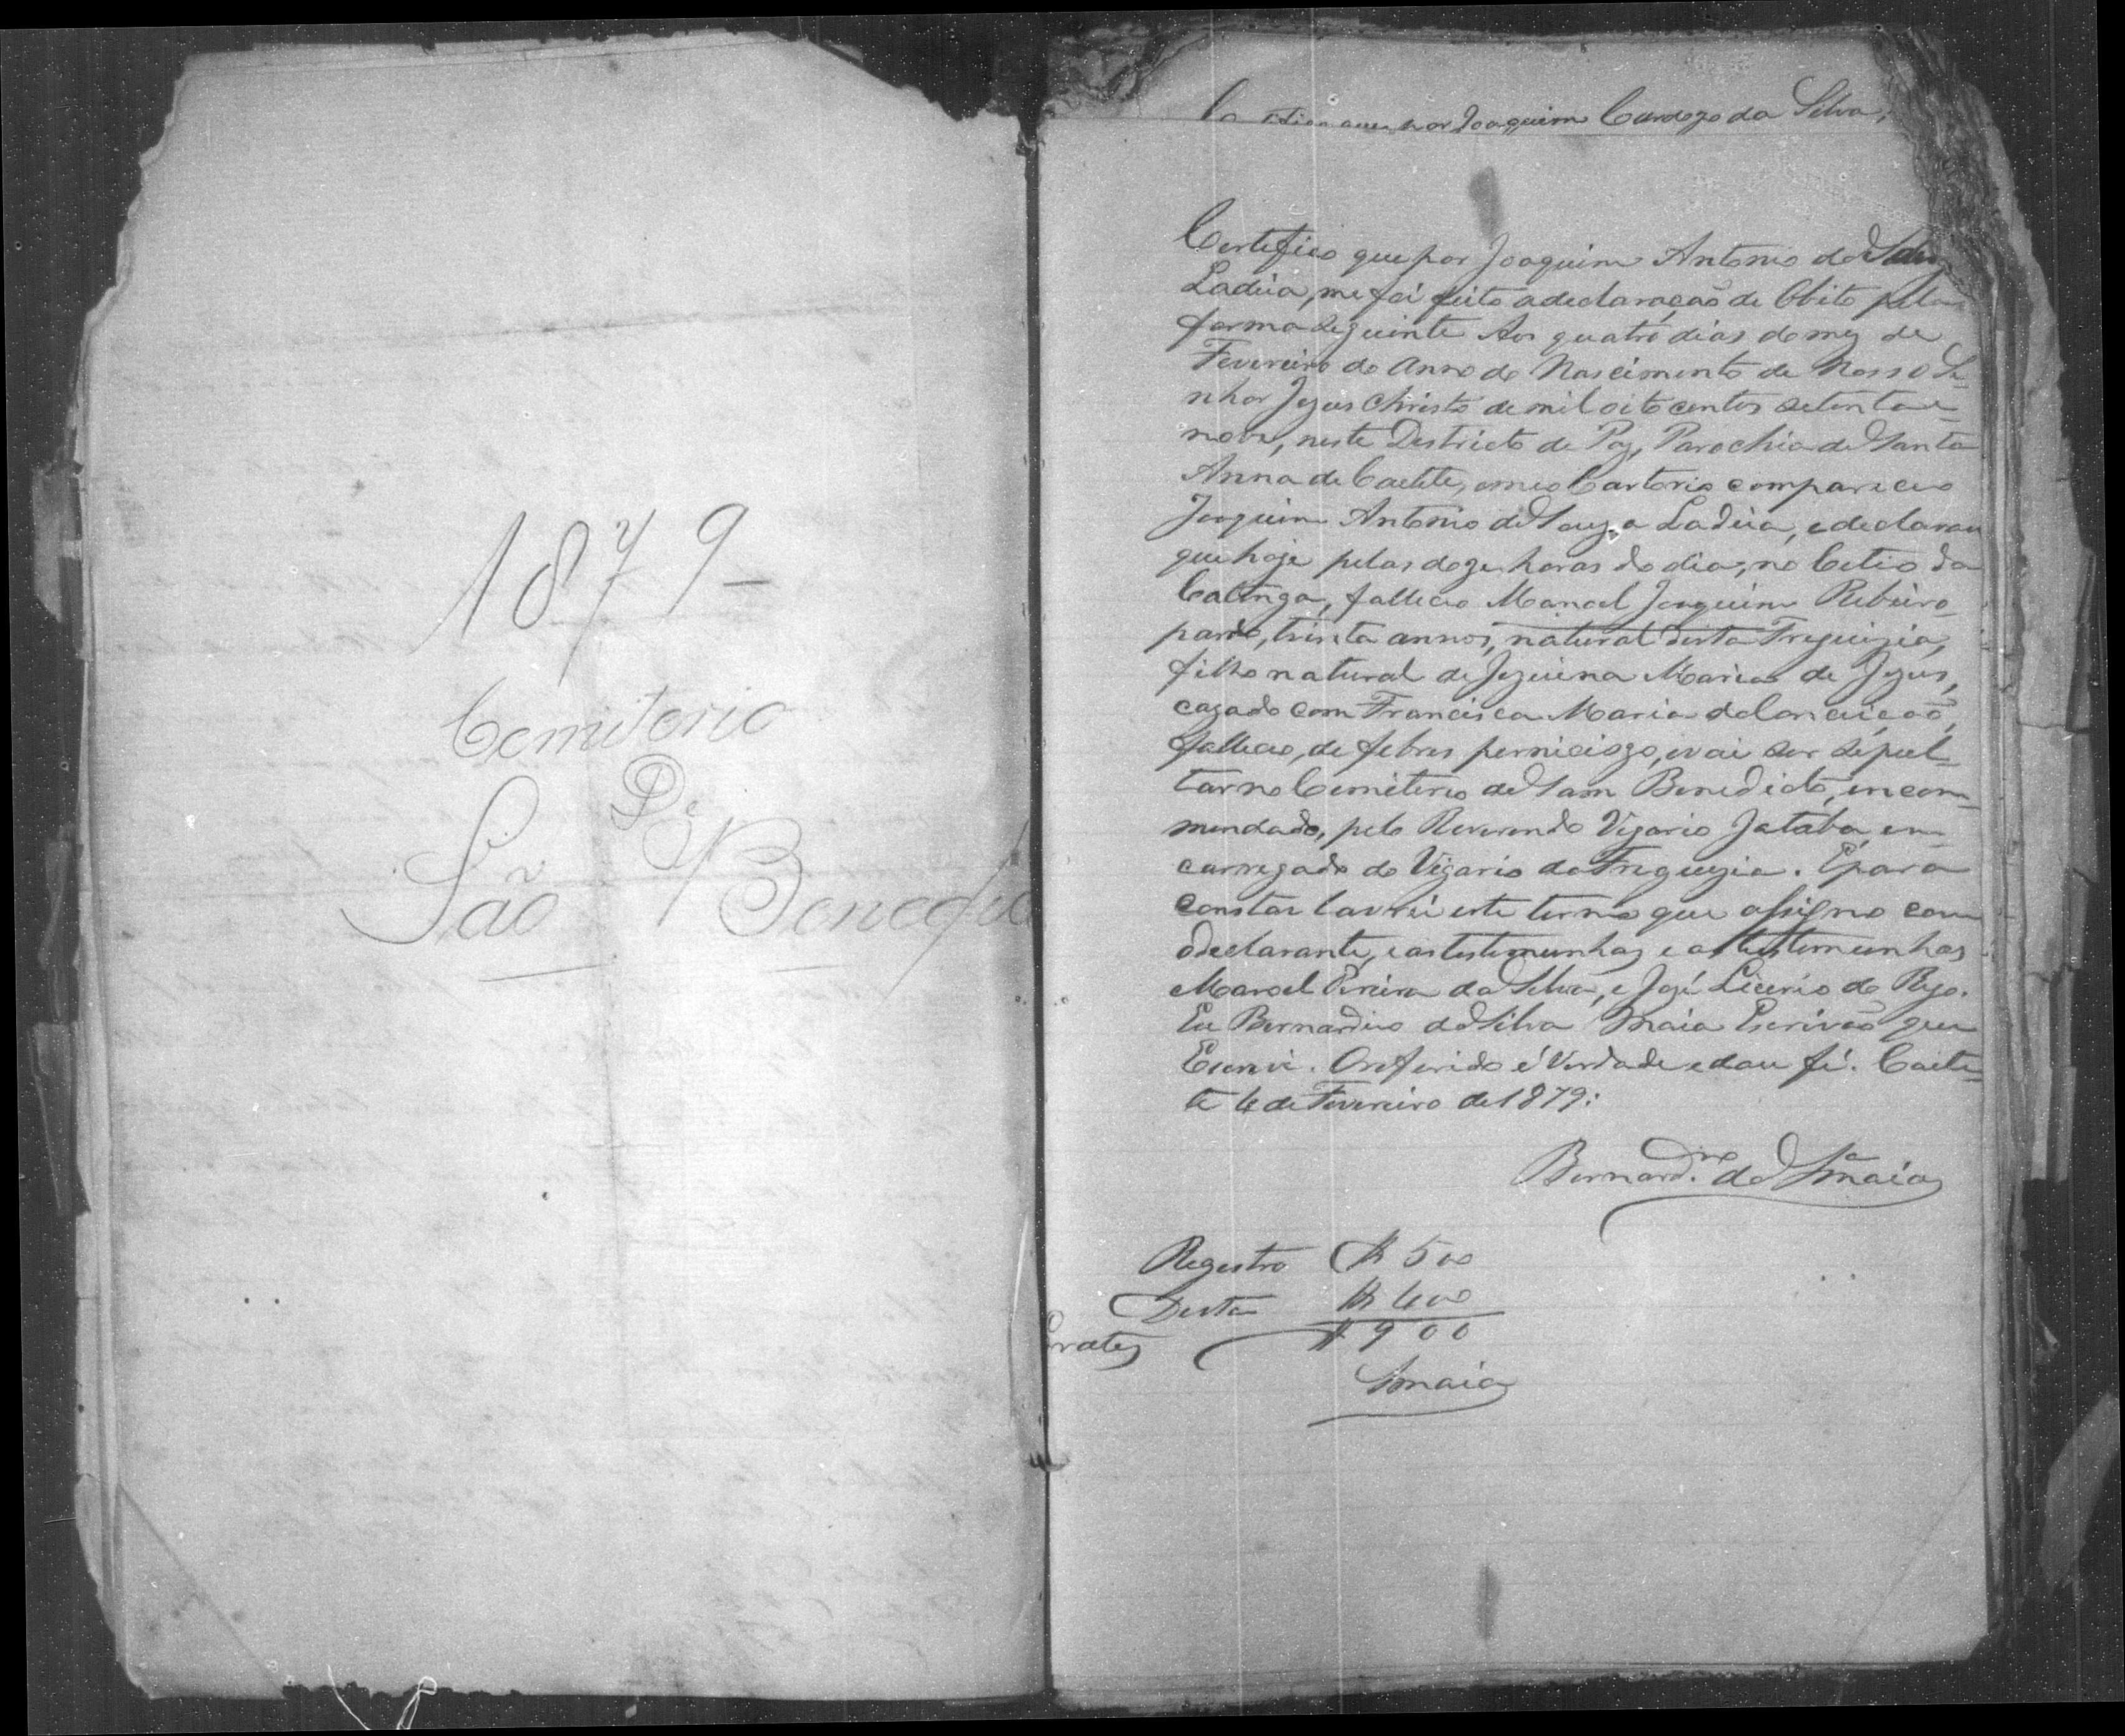 1879-
Cemiterio
De
São Bened
que por Joaquim Cardozo da Silva,
Certefico que por Joaquim Antonio de Souza
Ladeia, me foi feito a declaração de Obito pela
forma Seguinte Aos quatro dias do mez de
Fevereiro do Anno do Nascimento de Nosso Se-
nhor Jezus Christo de mil oito centos setenta e
nove, neste Destricto de Paz, Parochia de Santa
Anna de Caetite, em meo Cartorio compareceo
Joaquim Antonio de Souza Ladeia, e declarou
que hoje pelas doze horas do dia, no Citio da
Catinga, falleceo Manoel Joaquim Ribeiro
pardo, trinta annos, natural desta Freguizia,
filho natural de Jezuina Maria de Jezus,
cazado com Francisca Maria da Conceição,
falleceo, de febres perniciozo, e vai ser sepul-
tar no Cemiterio de Sam Benedicto, encom-
mendado, pelo Reverendo Vigario Jatabá, en-
carregado do Vigario da Freguezia. E para
constar lavrei este termo que assigno com
o declarante, e as testemunhas e as testemunhas
Manoel Pereira da Silva, e José Licerio do Rego.
Eu Bernardino da Silva Maia Escrivão que
Escrevi. O referido é verdade e dou fé. Caete-
te 4 de Fevereiro de 1879:
Bernard.no da S.a Maia
Registro R 500
Desta R 400
Gratez $ 900
Smaia